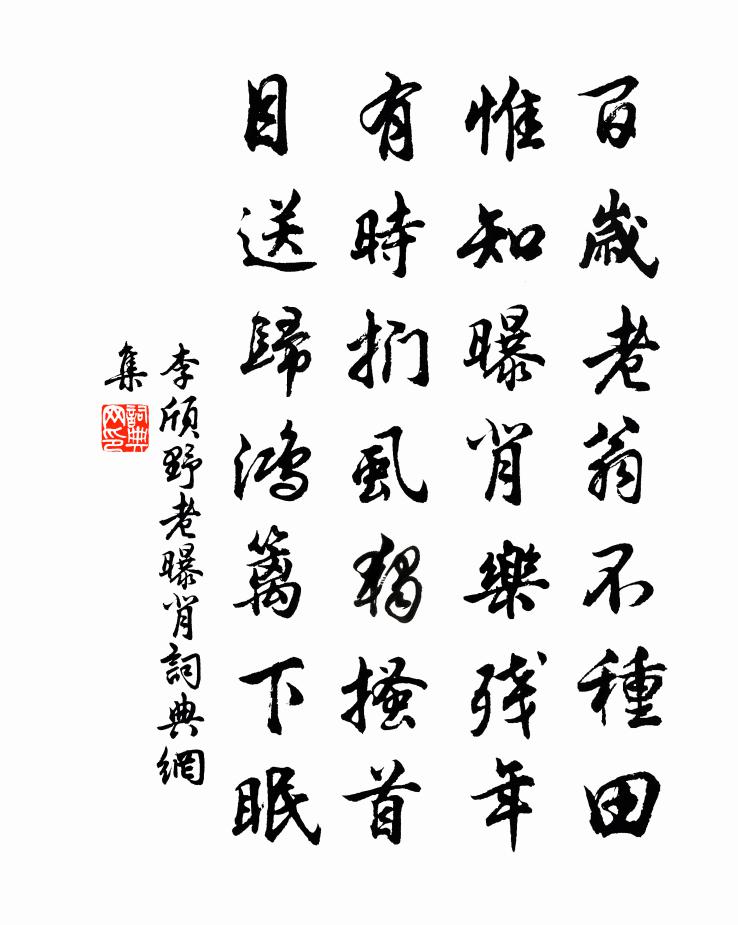 百歲老翁不種田
惟知曝背樂殘年
有時捫虱獨搔首
目送歸鴻籬下眠
李頎野老曝背詞典網
集
詞典
网印